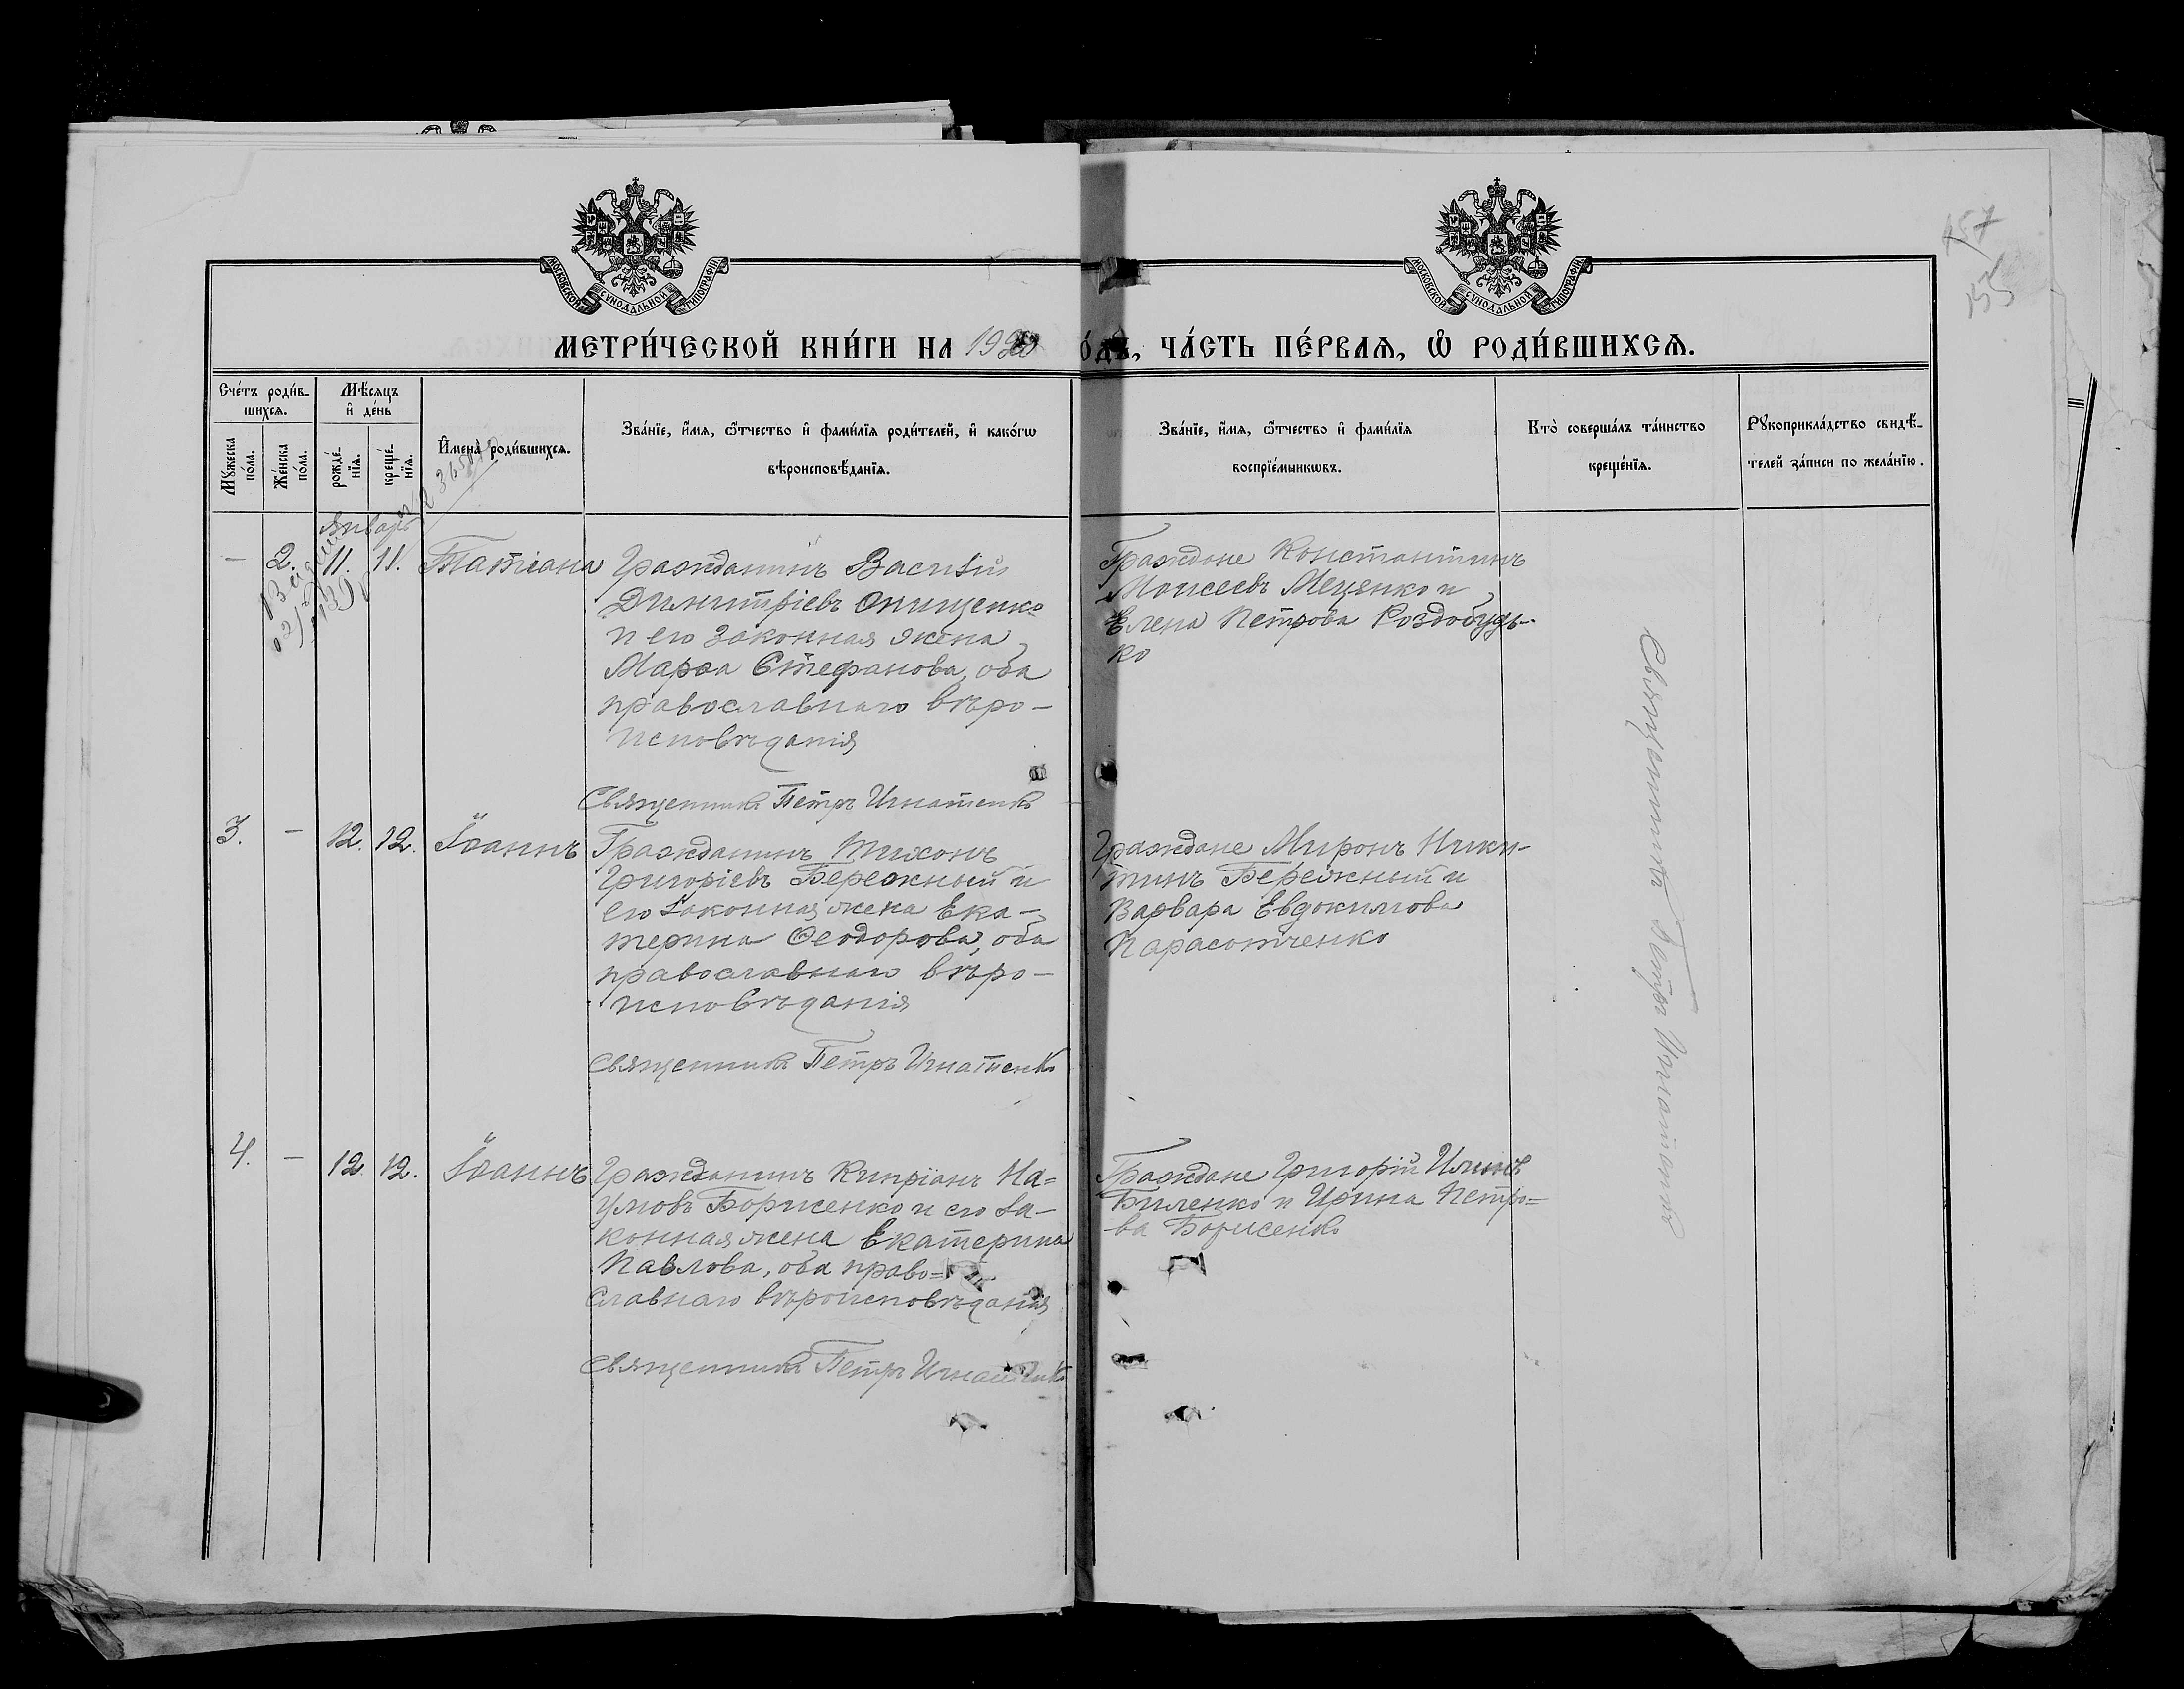 МОСКОВСКОЙ СѴНОДАЛЬНОЙ ТИПОГРАФІИ
МОСКОВСКОЙ СѴНОДАЛЬНОЙ ТИПОГРАФІИ
155
МЕТРИ́ЧЕСКОЙ КНИ́ГИ НА 1920
ЧА́СТЬ ПЕ́РВАѦ, Ѡ҆ РОДИ́ВШИХСѦ.
Сче́тъ роди́в-
шихсѧ.
Мꙋ́жеска
по́ла.
Же́нска
по́ла.
Мѣ́сѧцъ
и҆ де́нь
рожде́-
нїѧ.
креще́-
нїѧ.
И҆мена̀ роди́вшихсѧ.
Зва́нїе, и҆́мѧ, ѻ҆́тчество и҆ фами́лїѧ роди́телей, и҆ како́гѡ
вѣроисповѣ́данїѧ.
Зва́нїе, и҆́мѧ, ѻ҆́тчество и҆ фами́лїѧ
воспрїе́мникѡвъ.
Кто̀ соверша́лъ та́инство
креще́нїѧ.
Рꙋкоприкла́дство свидѣ́-
телей за́писи по жела́нїю.
Январь
— 2. 11. 11. Татіана
Гражданинъ Василій
Димитріевъ Онищенко
и его законная жена
Марѳа Стефанова, оба
православнаго вѣро-
исповѣданія
Священникъ Петръ Игнатенко
Граждане Константинъ
Моисеевъ Мещенко и
Елена Петрова Роздобудь-
ко
3. — 12. 12. Іоаннъ
Гражданинъ Тихонъ
Григоріевъ Бережный и
его законная жена Ека-
терина Ѳеодорова, оба
православнаго вѣро-
исповѣданія
Священникъ Петръ Игнатенко
Граждане Миронъ Ники-
тинъ Бережный и
Варвара Евдокимова
4. — 12. 12. Іоаннъ
Гражданинъ Кипріанъ На=
умовъ Борисенко и его за-
конная жена Екатерина
Павлова, оба право=
славнаго вѣроисповѣданія
Священникъ Петръ Игнатенко
Граждане Григорій
Биленко и Ирина Петро=
-ва Борисенко
Священникъ Петръ Игнатенко